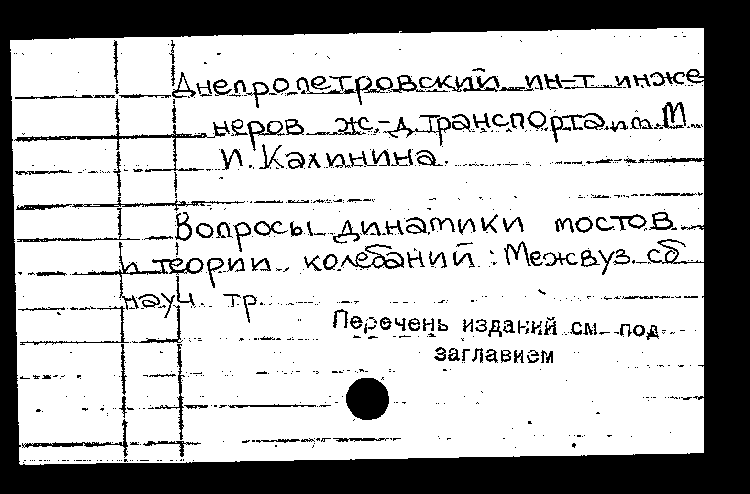 Днепропетровский ин-т инже
неров ж.-д. транспорта им. М.
И. Калинина.
Вопросы динамики мостов
и теории колебаний: Межвуз. сб
науч. тр.
Перечень изданий см. под
заглавием